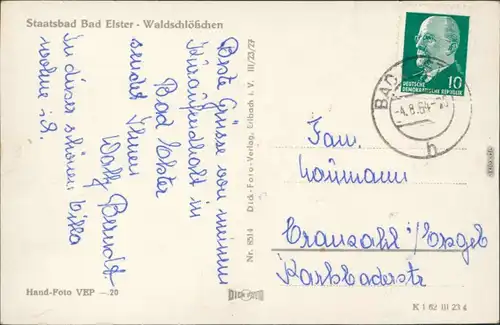 Staatsbad Bad Elster - Waldschlößchen
Beste Grüsse von meinem
Kuraufenthalt in
Bad Elster
sendet Ihnen
Wally Brandt.
In dieser schönen Villa
wohne ich.
Hand-Foto VEP —.20
Nr. 8014 Dick-Foto-Verlag, Erlbach i. V. III/23/27
DICK FOTO
10
DEUTSCHE
DEMOKRATISCHE REPUBLIK
BAD
-4.8.64-
h
Fam.
Naumann
Cranzahl i/Erzgeb
Karlsbaderstr
K 1 62 III 23 4